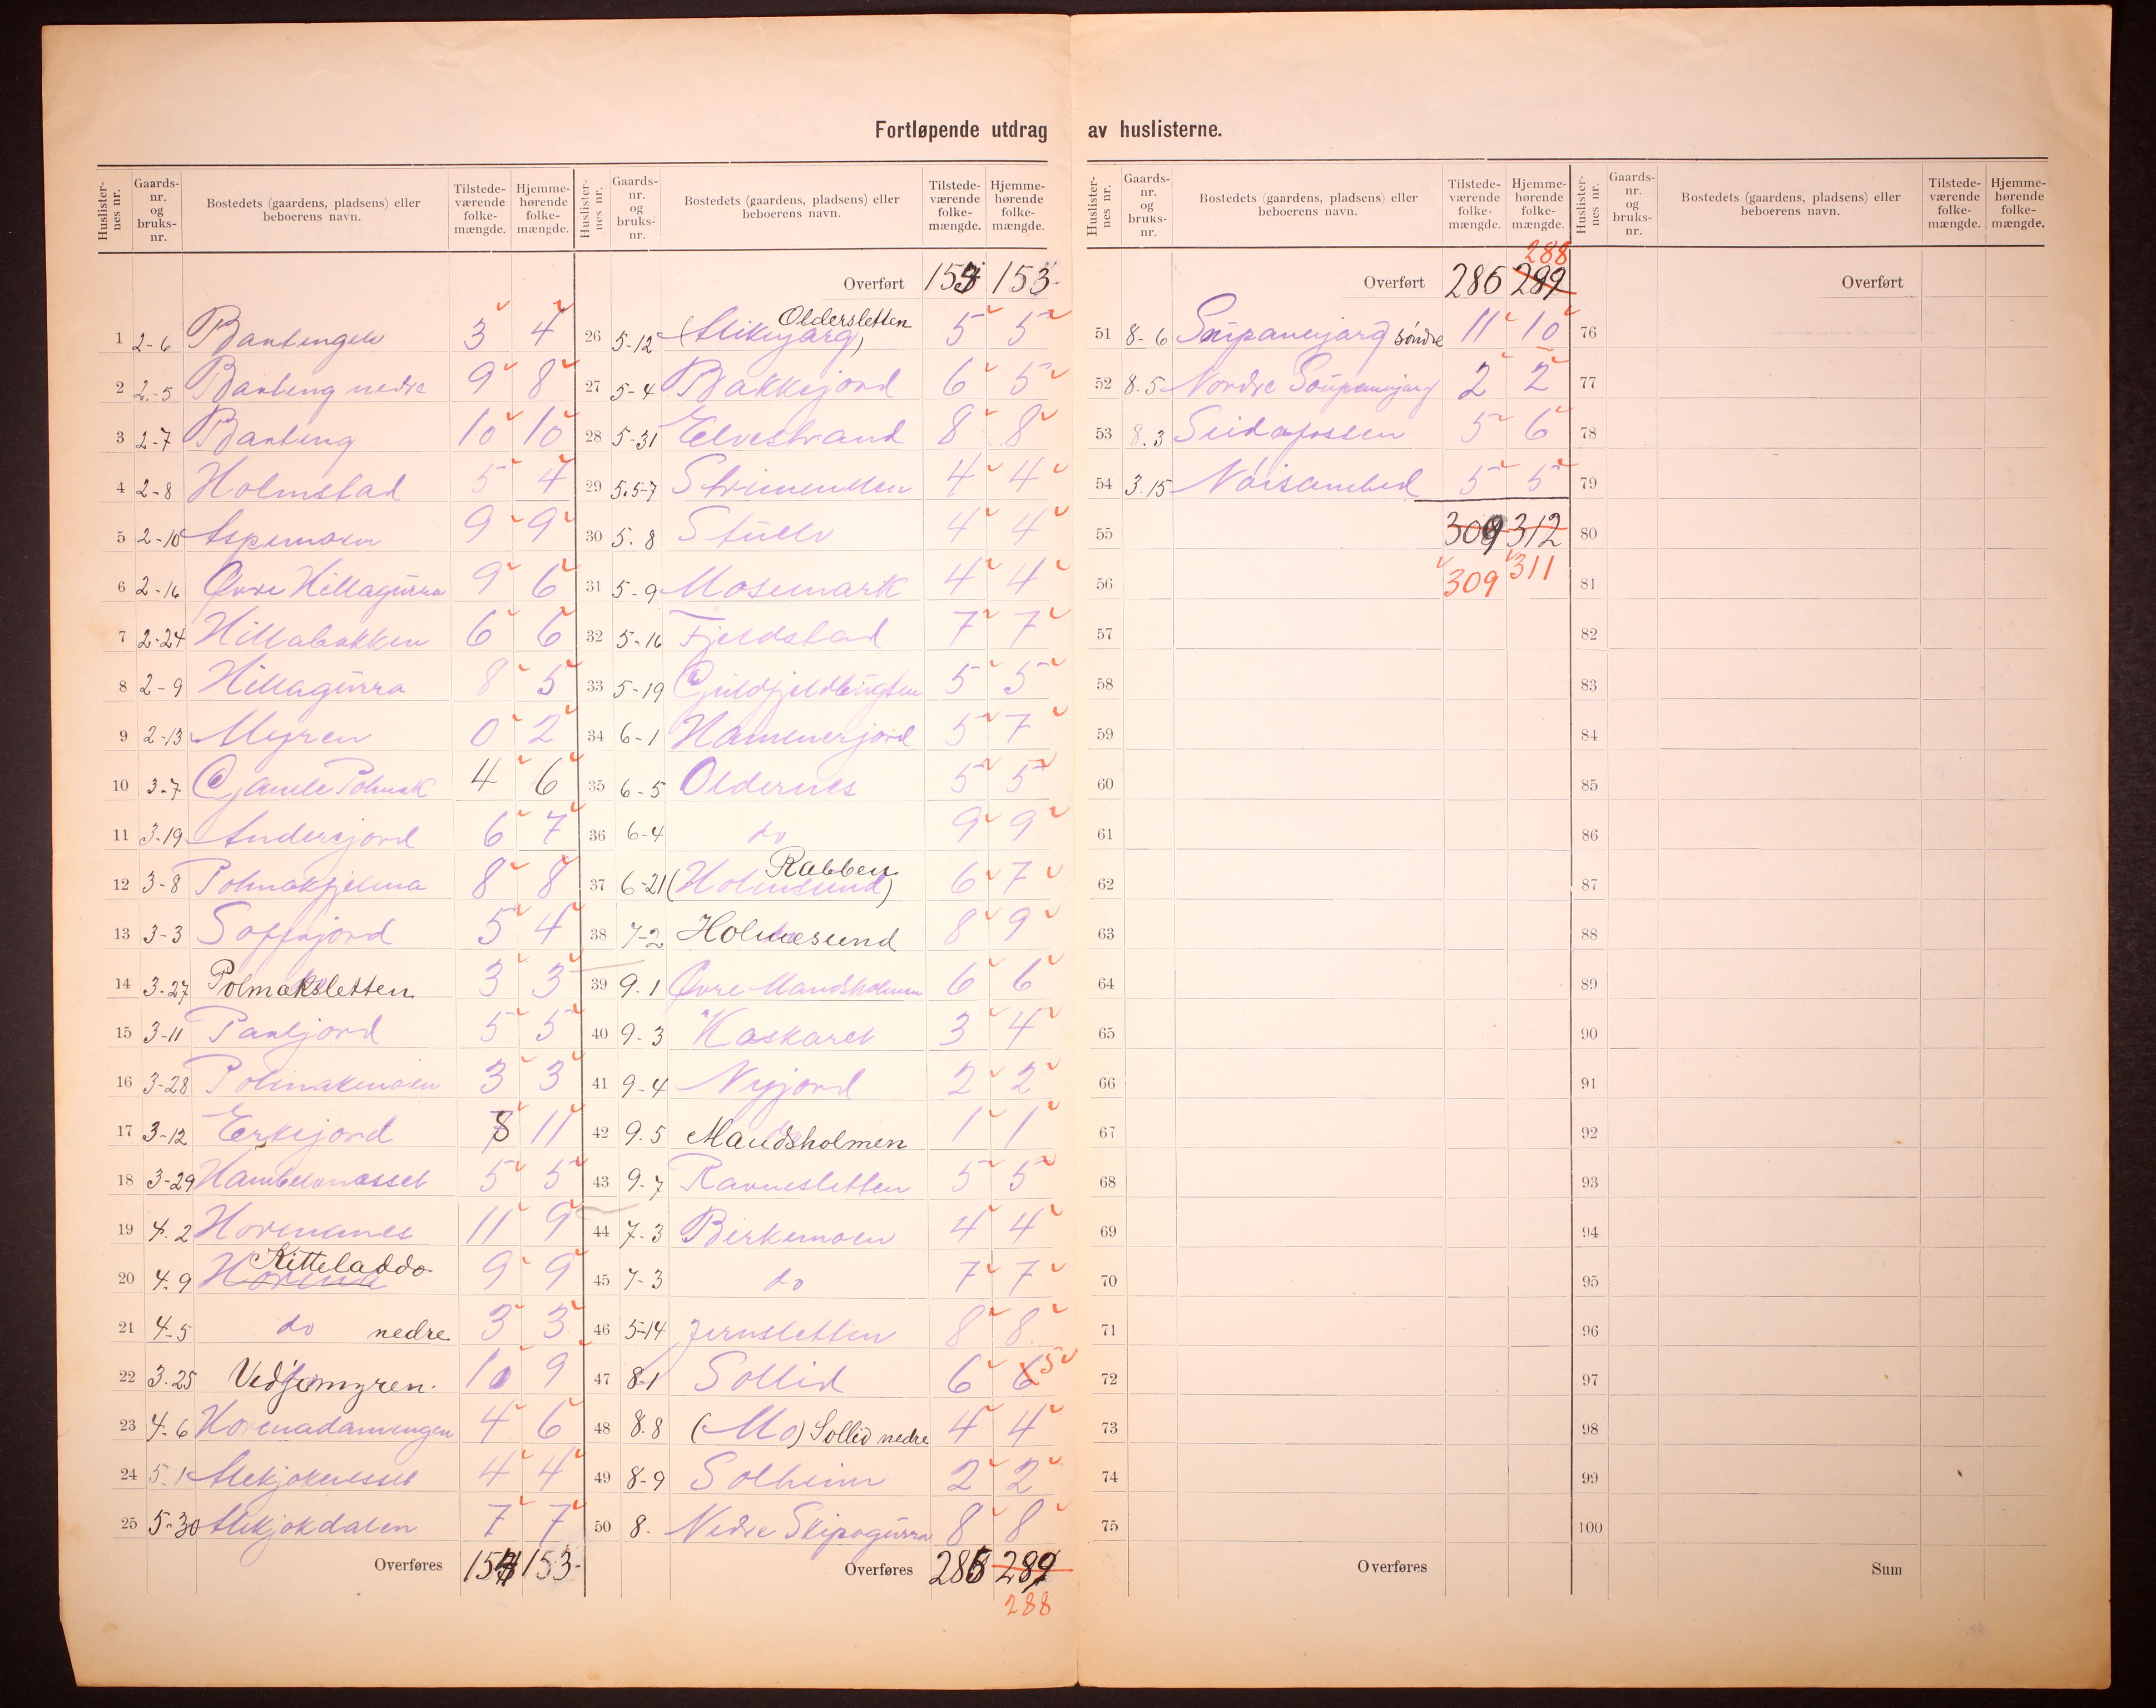 Fortløpende utdrag av huslisterne.
Huslisternes nr. Gaards-nr. og bruks-nr. Bostedets (gaardens, pladsens) eller beboerens navn. Tilstedeværende folkemængde. Hjemmehørende folkemængde.
1 2-6 3 4
2 2-5 nedre 9 8
3 2-7 10 10
4 2-8 Holmstad 5 4
5 2-10 Aspemoen 9 9
6 2-16 Øvre Hillagurra 9 6
7 2-24 Hillabakken 6 6
8 2-9 Hillagurra 8 5
9 2-13 Myren 0 2
10 3-7 Gamle Polmak 4 6
11 3-19 Andersjord 6 7
12 3-8 Polmakfjelma 8 8
13 3-3 5 4
14 3-27 Polmaksletten 3 3
15 3-11 Pauljord 5 5
16 3-28 Polmakmoen 3 3
17 3-12 Erkejord 8 11
18 3-29 5 5
19 4.2 Hormanes 11 9
20 4.9 Kitteladdo 9 9
21 4-5 do nedre 3 3
22 3.25 Vidjemyren. 10 9
23 4-6 4 6
24 5.1 Alekjoknesset 4 4
25 5-30 Alekjokdalen 7 7
Overføres 153-
Huslisternes nr. Gaards-nr. og bruks-nr. Bostedets (gaardens, pladsens) eller beboerens navn. Tilstedeværende folkemængde. Hjemmehørende folkemængde.
Overført 153-
Oldersletten
26 5-12 5 5
27 5-4 Bakkejord 6 5
28 5-31 Elvestrand 8 8
29 5.5-7 4 4
30 5.8 4 4
31 5-9 Mosemark 4 4
32 5-16 Fjeldstad 7 7
33 5-19 Guldfjeldbugten 5 5
34 6-1 Hammerjord 5 7
35 6-5 Oldernes 5 5
36 6-4 do 9 9
Rabben
37 6-21 (Holmesund) 6 7
38 7-2 Holmesund 8 9
39 9.1 Øvre Mandsholmen 6 6
40 9-3 Kaskaret 3 4
41 9-4 Nyjord 2 2
42 9.5 Mandsholmen 1 1
43 9-7 Ravnesletten 5 5
44 7-3 Birkemoen 4 4
45 7-3 do 7 7
46 5-14 Jernsletten 8 8
47 8-1 Sollid 6 6 5
48 8.8 (Mo) Sollid nedre 4 4
49 8-9 Solheim 2 2
50 8. Nedre Skipagurra 8 8
Overføres 286 289
288
Huslisternes nr. Gaards-nr. og bruks-nr. Bostedets (gaardens, pladsens) eller beboerens navn. Tilstedeværende folkemængde. Hjemmehørende folkemængde.
288
Overført 286 289
51 8-6 søndre 11 10
52 8.5 Nordre 2 2
53 8.3 Seidafossen 5 6
54 3.15 5 5
55 309 312
56 309 311
57
58
59
60
61
62
63
64
65
66
67
68
69
70
71
72
73
74
75
Overføres
Huslisternes nr. Gaards-nr. og bruks-nr. Bostedets (gaardens, pladsens) eller beboerens navn. Tilstedeværende folkemængde. Hjemmehørende folkemængde.
Overført
76
77
78
79
80
81
82
83
84
85
86
87
88
89
90
91
92
93
94
95
96
97
98
99
100
Sum